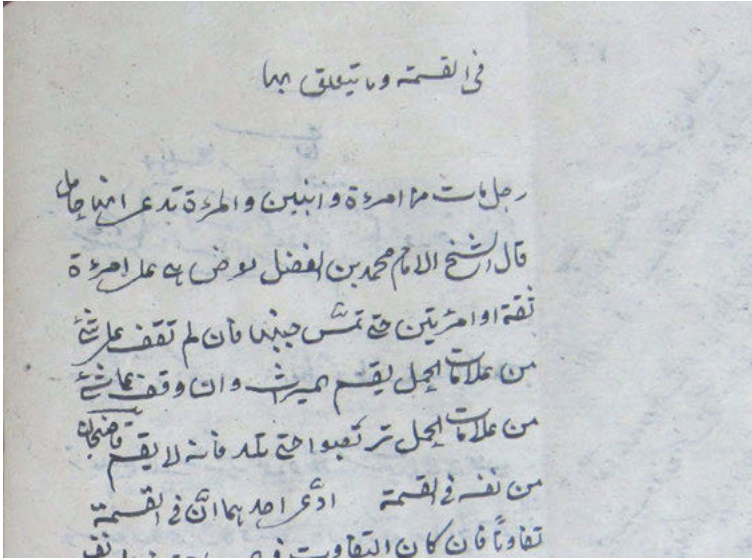 في القسمة وما يتعلق بها
رجل مات عن امرءة وابنين والمرءة تدعى انها حامل
قال الشيخ الامام محمد بن الفضل يعرض هى على امرءة
ثقة او امرئتين حتى تمسّ جنبها فان لم تقف على شئ
من علامات الحمل يقسم الميراث وان وقف على شئ
من علامات الحمل تربصوا حتى تلد فانه لا يقسم قاضيخان
من نفسه في القسمة ادّعى احدهما انّ في القسمة
تفاوتاً فان كان التفاوت